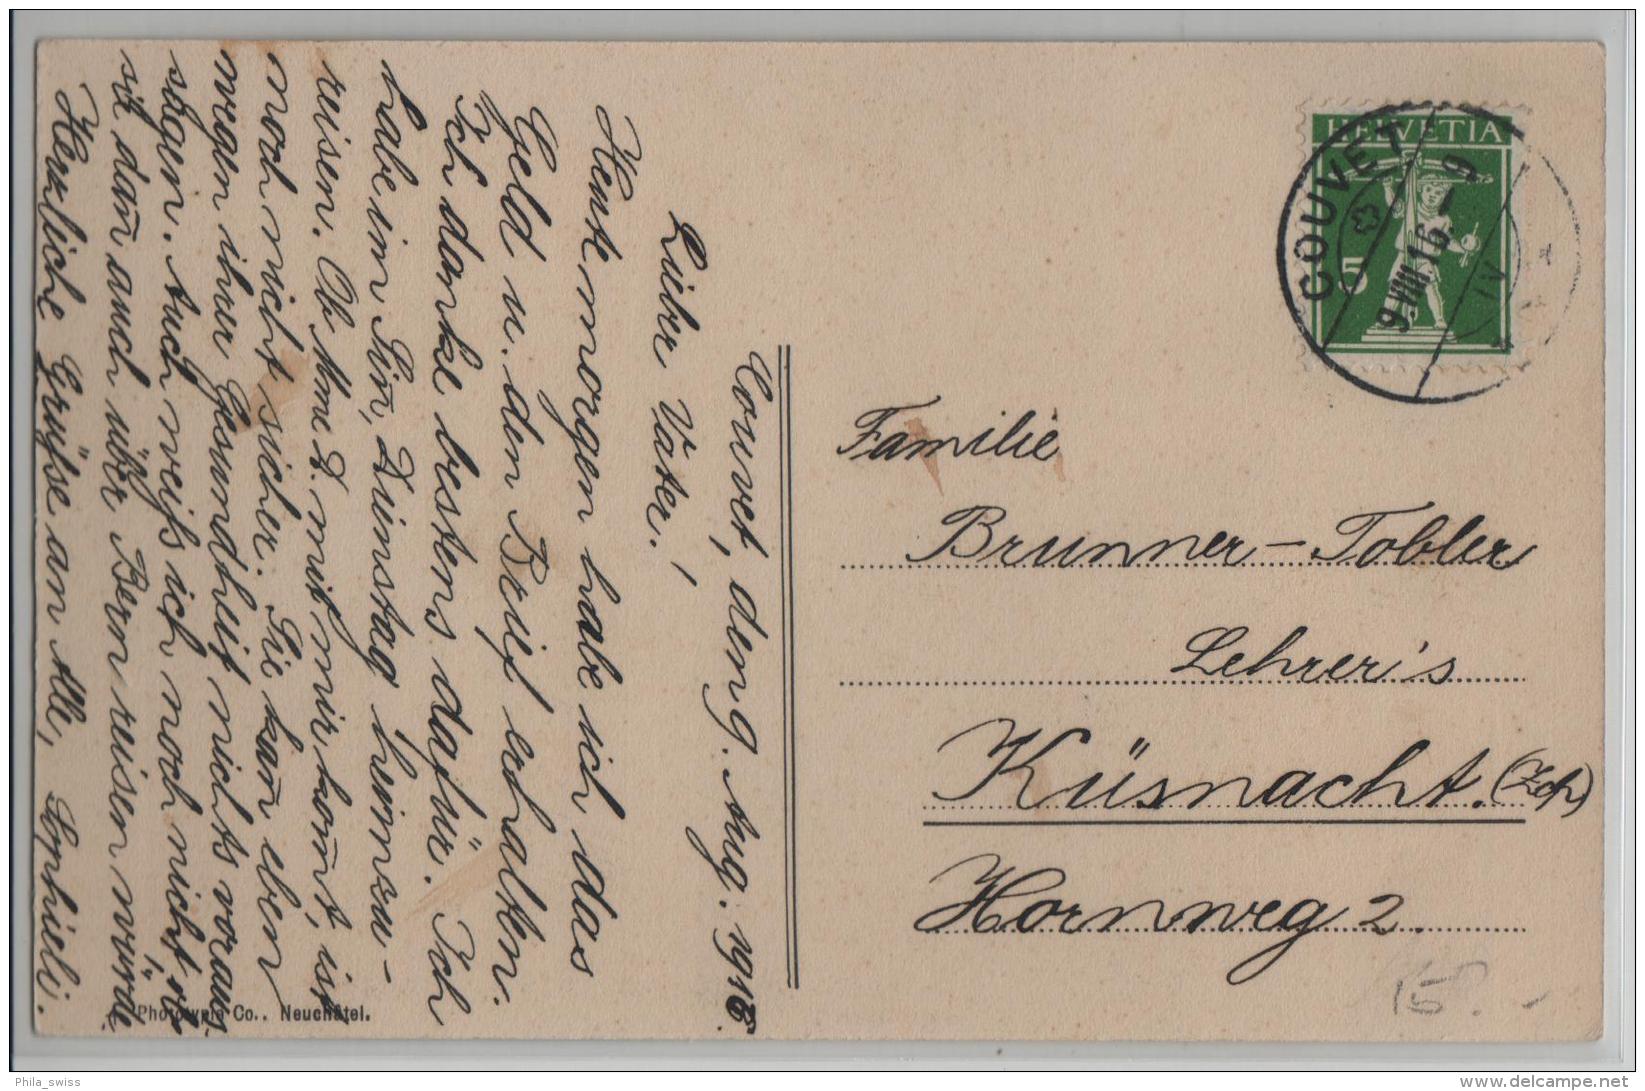 Couvet, den 9. Aug. 1916.
Lieber Vater!
Heute morgen habe ich das
Geld u. den Brief erhalten.
Ich danke bestens dafür. Ich
habe im Sin̄, Dienstag heimzu-
reisen. Ob Mme D. mit mir kom̄t, ist
noch nicht sicher. Sie kan̄ eben
wegen ihrer Gesundheit nichts voraus
sagen. Auch weiss ich noch nicht ob
sie dan̄ auch über Bern reisen würde.
Herzliche Grüsse an Alle,
Sophieli.
Phototypie Co., Neuchâtel.
HELVETIA
5
COUVET
9.VIII.16.-9
IV
Familie
Brunner-Tobler
Lehrer's
Küsnacht. (Zch)
Hornweg 2.
15.-
Phila_swiss
delcampe.net